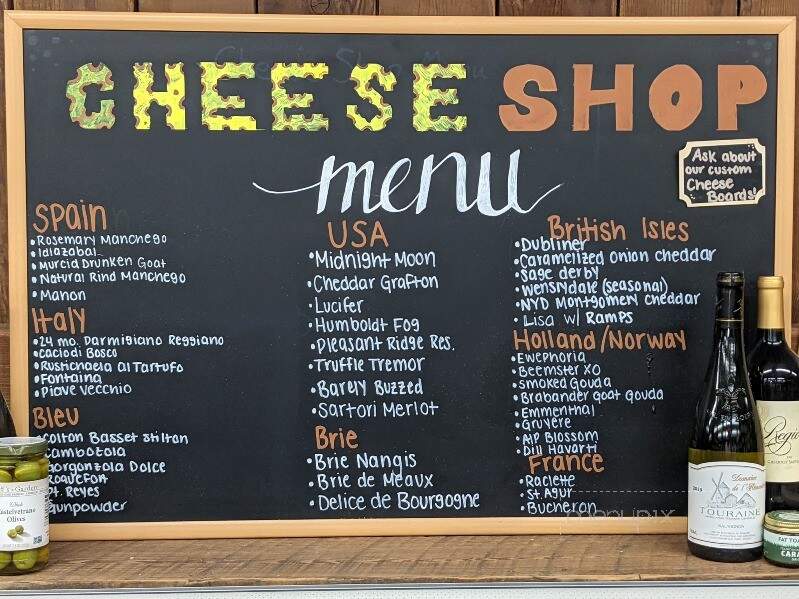 CHEESE SHOP
menu
Ask about
our custom
Cheese
Boards!
Spain
• Rosemary Manchego
• Idiazabal
• Murcia Drunken Goat
• Natural Rind Manchego
• Manon
Italy
• 24 mo. Parmigiano Reggiano
• Caciodi Bosco
• Rustichaela al Tartufo
• Fontaina
• Piave Vecchio
Bleu
Colton Basset Stilton
Cambotola
Gorgonzola Dolce
Roquefort
Pt. Reyes
Gunpowder
USA
• Midnight Moon
• Cheddar Grafton
• Lucifer
• Humboldt Fog
• Pleasant Ridge Res.
• Truffle Tremor
• Barely Buzzed
• Sartori Merlot
Brie
• Brie Nangis
• Brie de Meaux
• Delice de Bourgogne
British Isles
• Dubliner
• Caramelized onion cheddar
• Sage derby
• Wensydale (seasonal)
• NYD Montgomery cheddar
• Lisa w/ Ramps
Holland/Norway
• Ewephoria
• Beemster XO
• Smoked Gouda
• Brabander goat gouda
• Emmenthal
• Gruyere
• Alp Blossom
• Dill Havarti
France
• Raclette
• St. Agur
• Bucheron
menupix
Castelvetrano
Olives
Domaine
TOURAINE
SAUVIGNON
FAT TOAD
CARA